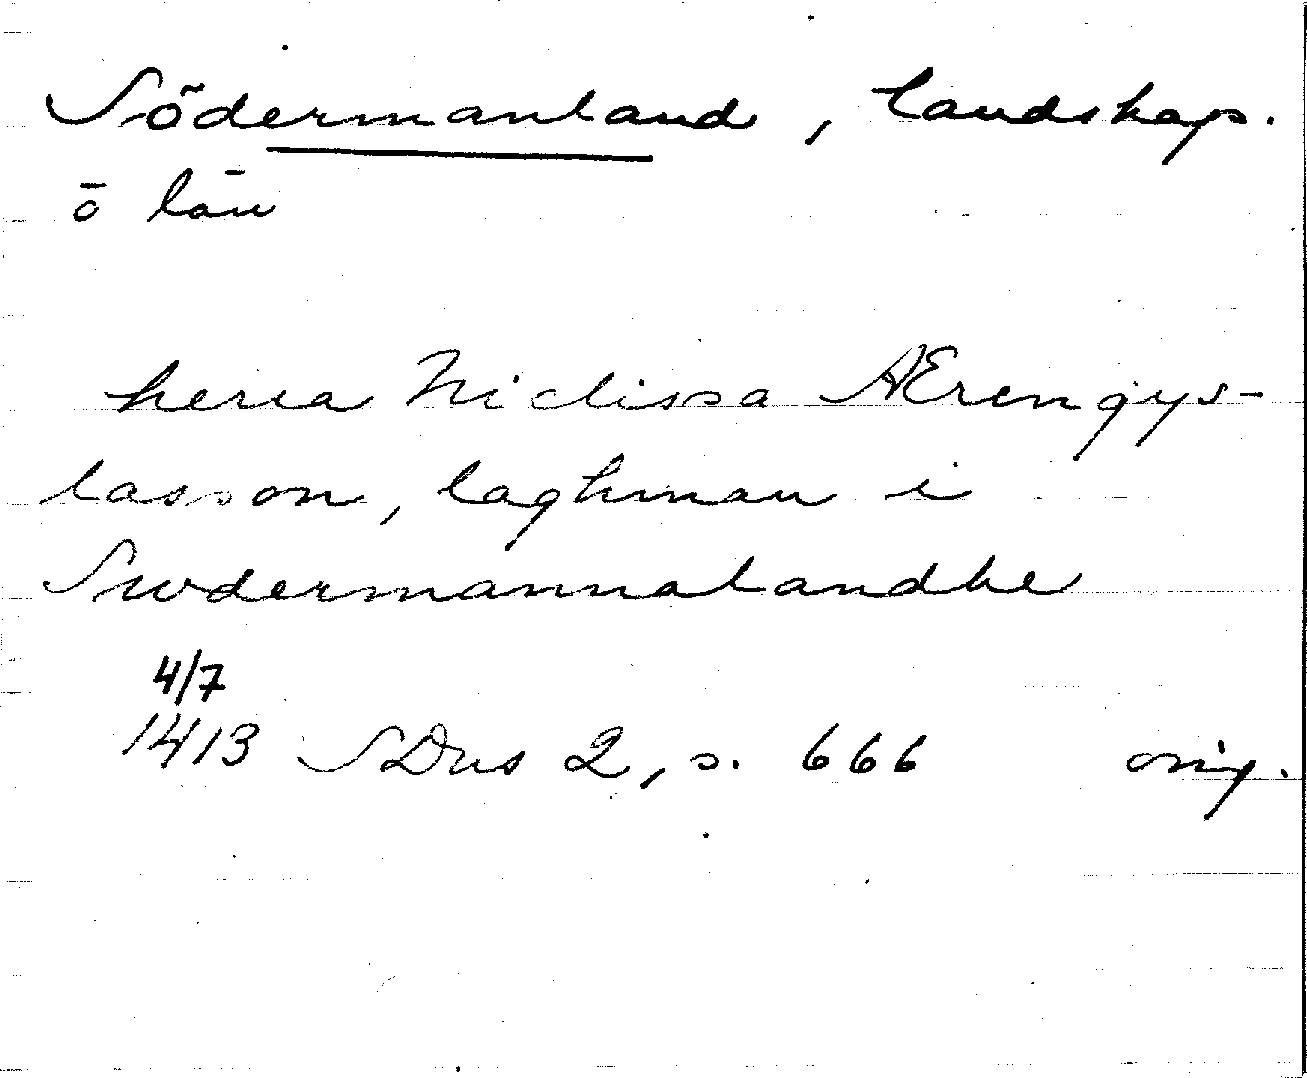 Södermanland, landskap.
o län
herra Niclissa Ærengys-
lasson, laghman i
Swdermannalandhe
4/7
1413 SDns 2, s. 666 orig.